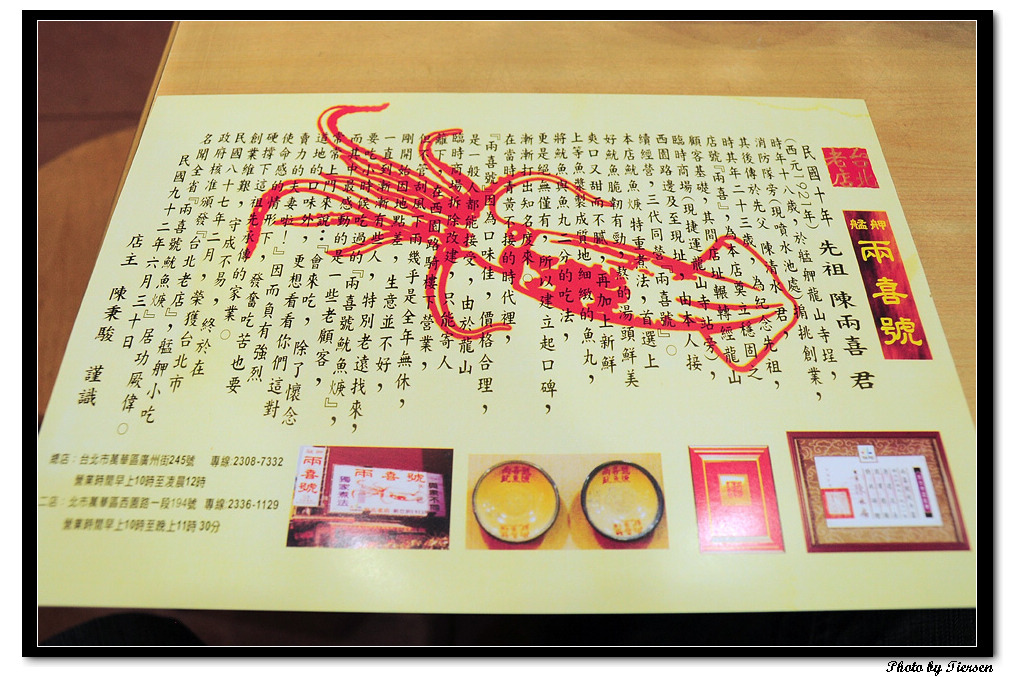 台北老店
艋舺 兩喜號
民國十年 先祖 陳兩喜 君
(西元1921年)
時年十八歲,於艋舺龍山寺埕,
消防隊旁(現噴水池處)肩挑創業,
其後傳於先父 陳清水 君,
時其年二十三歲,為紀念先祖,
店號『兩喜』,為本店奠立穩固之
顧客基礎,其間店址輾轉經龍山
臨時商場(現捷運龍山寺站旁)、
西園路邊及至現址,由本人接
續經營,三代同營『兩喜號』。
本店魷魚焿特重煮法,首選上
好魷魚脆韌有勁,熬的湯頭鮮美
爽口又甜而不膩,再加上新鮮
上等魚漿製成質地細緻的魚丸,
將魷魚與魚丸二分的吃法,
更是絕無僅有,所以建立起口碑,
漸漸打出知名度來。
在當時青黃不接的時代裡,
『兩喜號』因為口味佳,價格合理,
是一般人都能接受,由於龍山
臨時商場拆除改建,只能寄人
籬下,在西園路騎樓下營業,
但不管刮風下雨幾乎是全年無休,
剛開始因地點差,生意並不好,
一直到漸漸有些人,特別老遠找來,
要吃小時候吃過的『兩喜號魷魚焿』,
而其中最感動的是一些老顧客,
常常上門來說:『會來吃,除了懷念
道地的口味外,更想看看你們這對
賣力的夫妻啦!』因而負有強烈
使命感的情形下,發奮吃苦也要
硬撐下這祖先承傳的家業。
創業維艱,守成不易,終於在
民國八十七年二月,榮獲台北市
政府核准頒發『台北老店』,艋舺小吃
名聞全省『兩喜號魷魚焿』居功厥偉。
民國九十二年六月三十日
店主 陳秉駿 謹識
總店:台北市萬華區廣州街245號 專線:2308-7332
營業時間早上10時至凌晨12時
二店:北市萬華區西園路一段194號 專線:2336-1129
營業時間早上10時至晚上11時30分
兩喜號
兩喜號
獨家煮法
Photo by Tiersen